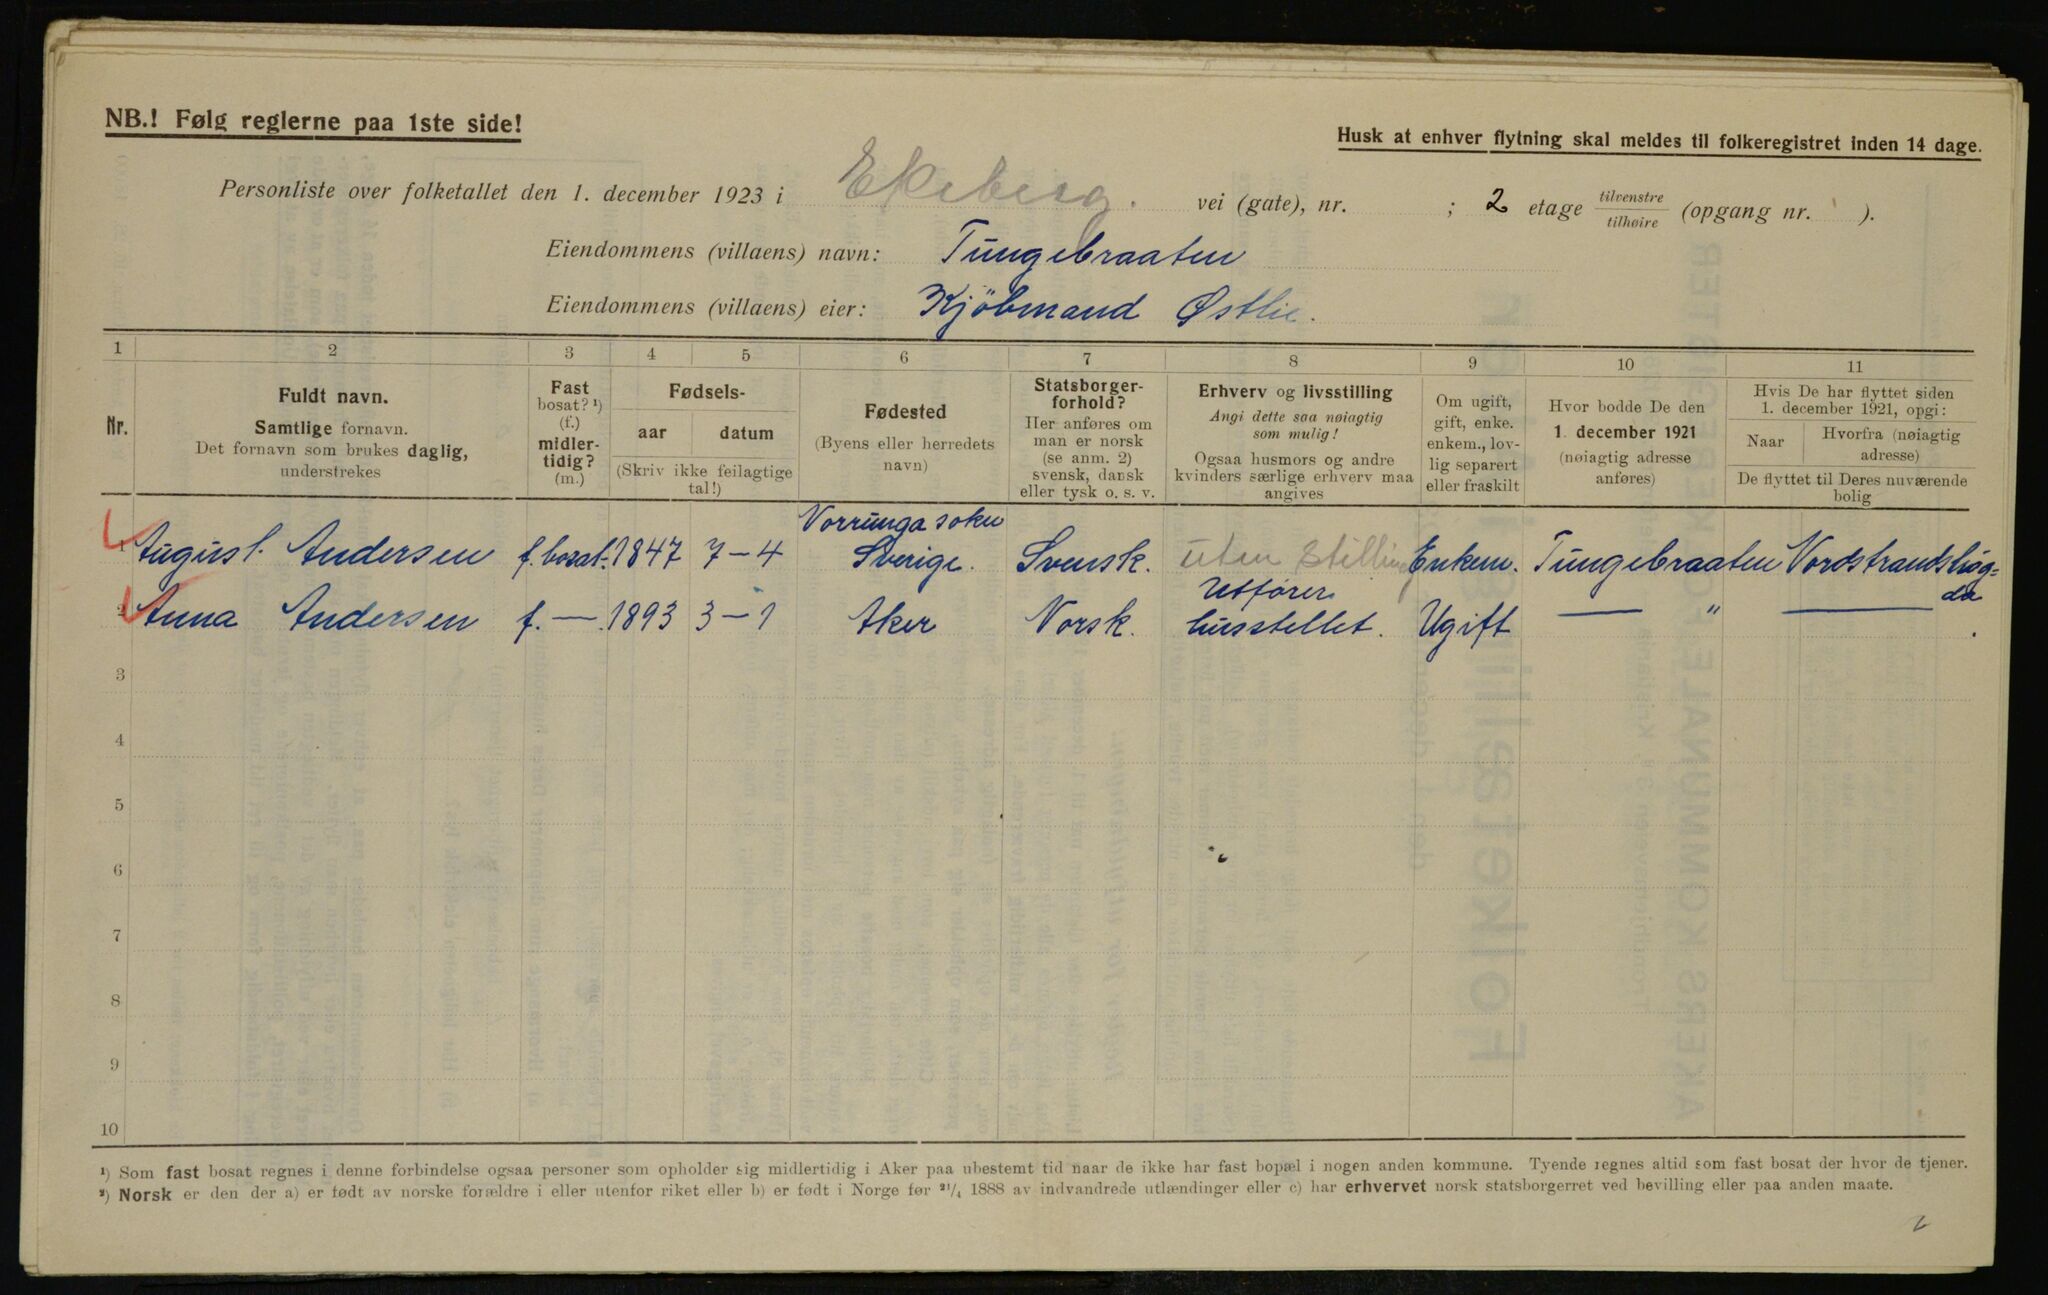 NB.! Følg reglerne paa 1ste side!
Husk at enhver flytning skal meldes til folkeregistret inden 14 dage.
Personliste over folketallet den 1. december 1923 i Ekeberg. vei (gate), nr. ; 2 etage tilvenstre tilhøire (opgang nr. ).
Eiendommens (villaens) navn: Tungebraaten
Eiendommens (villaens) eier: Kjöbmand Østlie.
1 2 3 4 5 6 7 8 9 10 11
Nr.
Fuldt navn.
Samtlige fornavn.
Det fornavn som brukes daglig,
understrekes
Fast
bosat? ¹)
(f.)
midler-
tidig?
(m.)
Fødsels-
aar datum
(Skriv ikke feilagtige
tal!)
Fødested
(Byens eller herredets
navn)
Statsborger-
forhold?
Her anføres om
man er norsk
(se anm. 2)
svensk, dansk
eller tysk o. s. v.
Erhverv og livsstilling
Angi dette saa nøiagtig
som mulig!
Ogsaa husmors og andre
kvinders særlige erhverv maa
angives
Om ugift,
gift, enke.
enkem., lov-
lig separert
eller fraskilt
Hvor bodde De den
1. december 1921
(nøiagtig adresse
anføres)
Hvis De har flyttet siden
1. december 1921, opgi:
Naar Hvorfra (nøiagtig
adresse)
De flyttet til Deres nuværende
bolig
Vorrunga soken
1 August. Andersen f. bosat. 1847 7-4 Sverige. Svensk. uten stilling Enkem. Tungebraaten Nordstrandshøg-
da
Utfører
2 Anna Andersen f. — . 1893 3-1 Aker Norsk. husstellet. Ugift — " —
3
4
5
6
7
8
9
10
¹) Som fast bosat regnes i denne forbindelse ogsaa personer som opholder sig midlertidig i Aker paa ubestemt tid naar de ikke har fast bopæl i nogen anden kommune. Tyende regnes altid som fast bosat der hvor de tjener.
²) Norsk er den der a) er født av norske forældre i eller utenfor riket eller b) er født i Norge før ²¹/₄ 1888 av indvandrede utlændinger eller c) har erhvervet norsk statsborgerret ved bevilling eller paa anden maate.